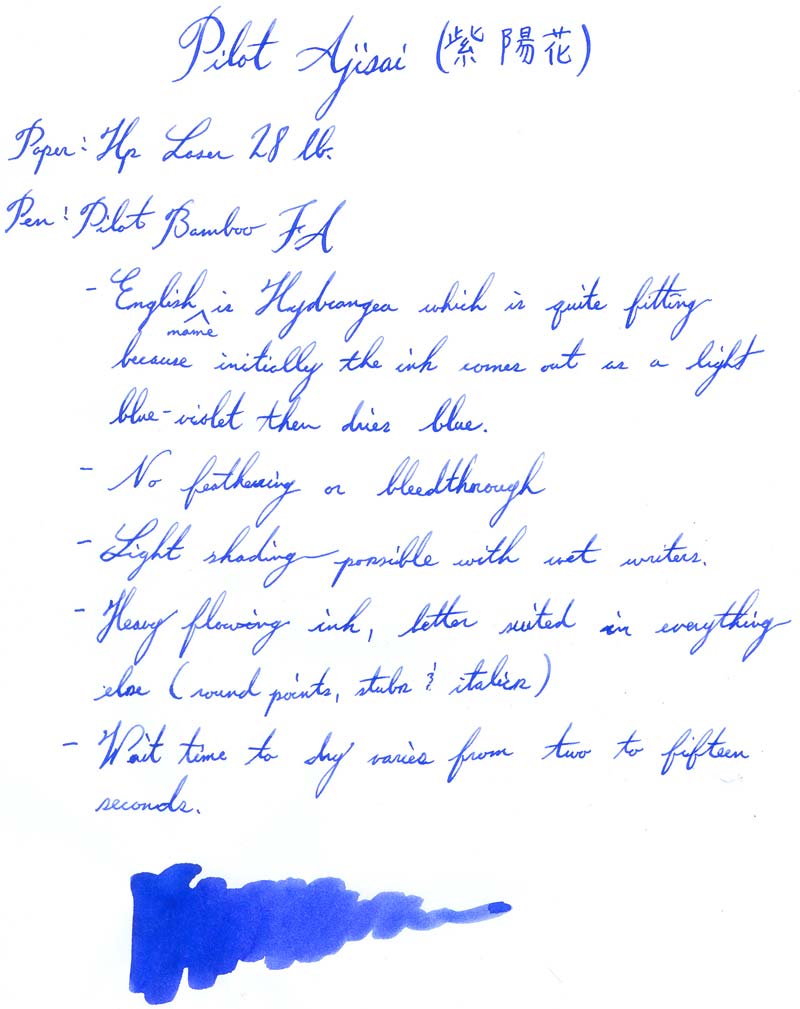 Pilot Ajisai (紫陽花)
Paper: Hp Laser 28 lb.
Pen: Pilot Bamboo FA
- English name is Hydrangea which is quite fitting
because initially the ink comes out as a light
blue-violet then dries blue.
- No feathering or bleedthrough
- Light shading possible with wet writers.
- Heavy flowing ink, better suited in everything
else (round points, stubs & italics)
- Wait time to dry varies from two to fifteen
seconds.